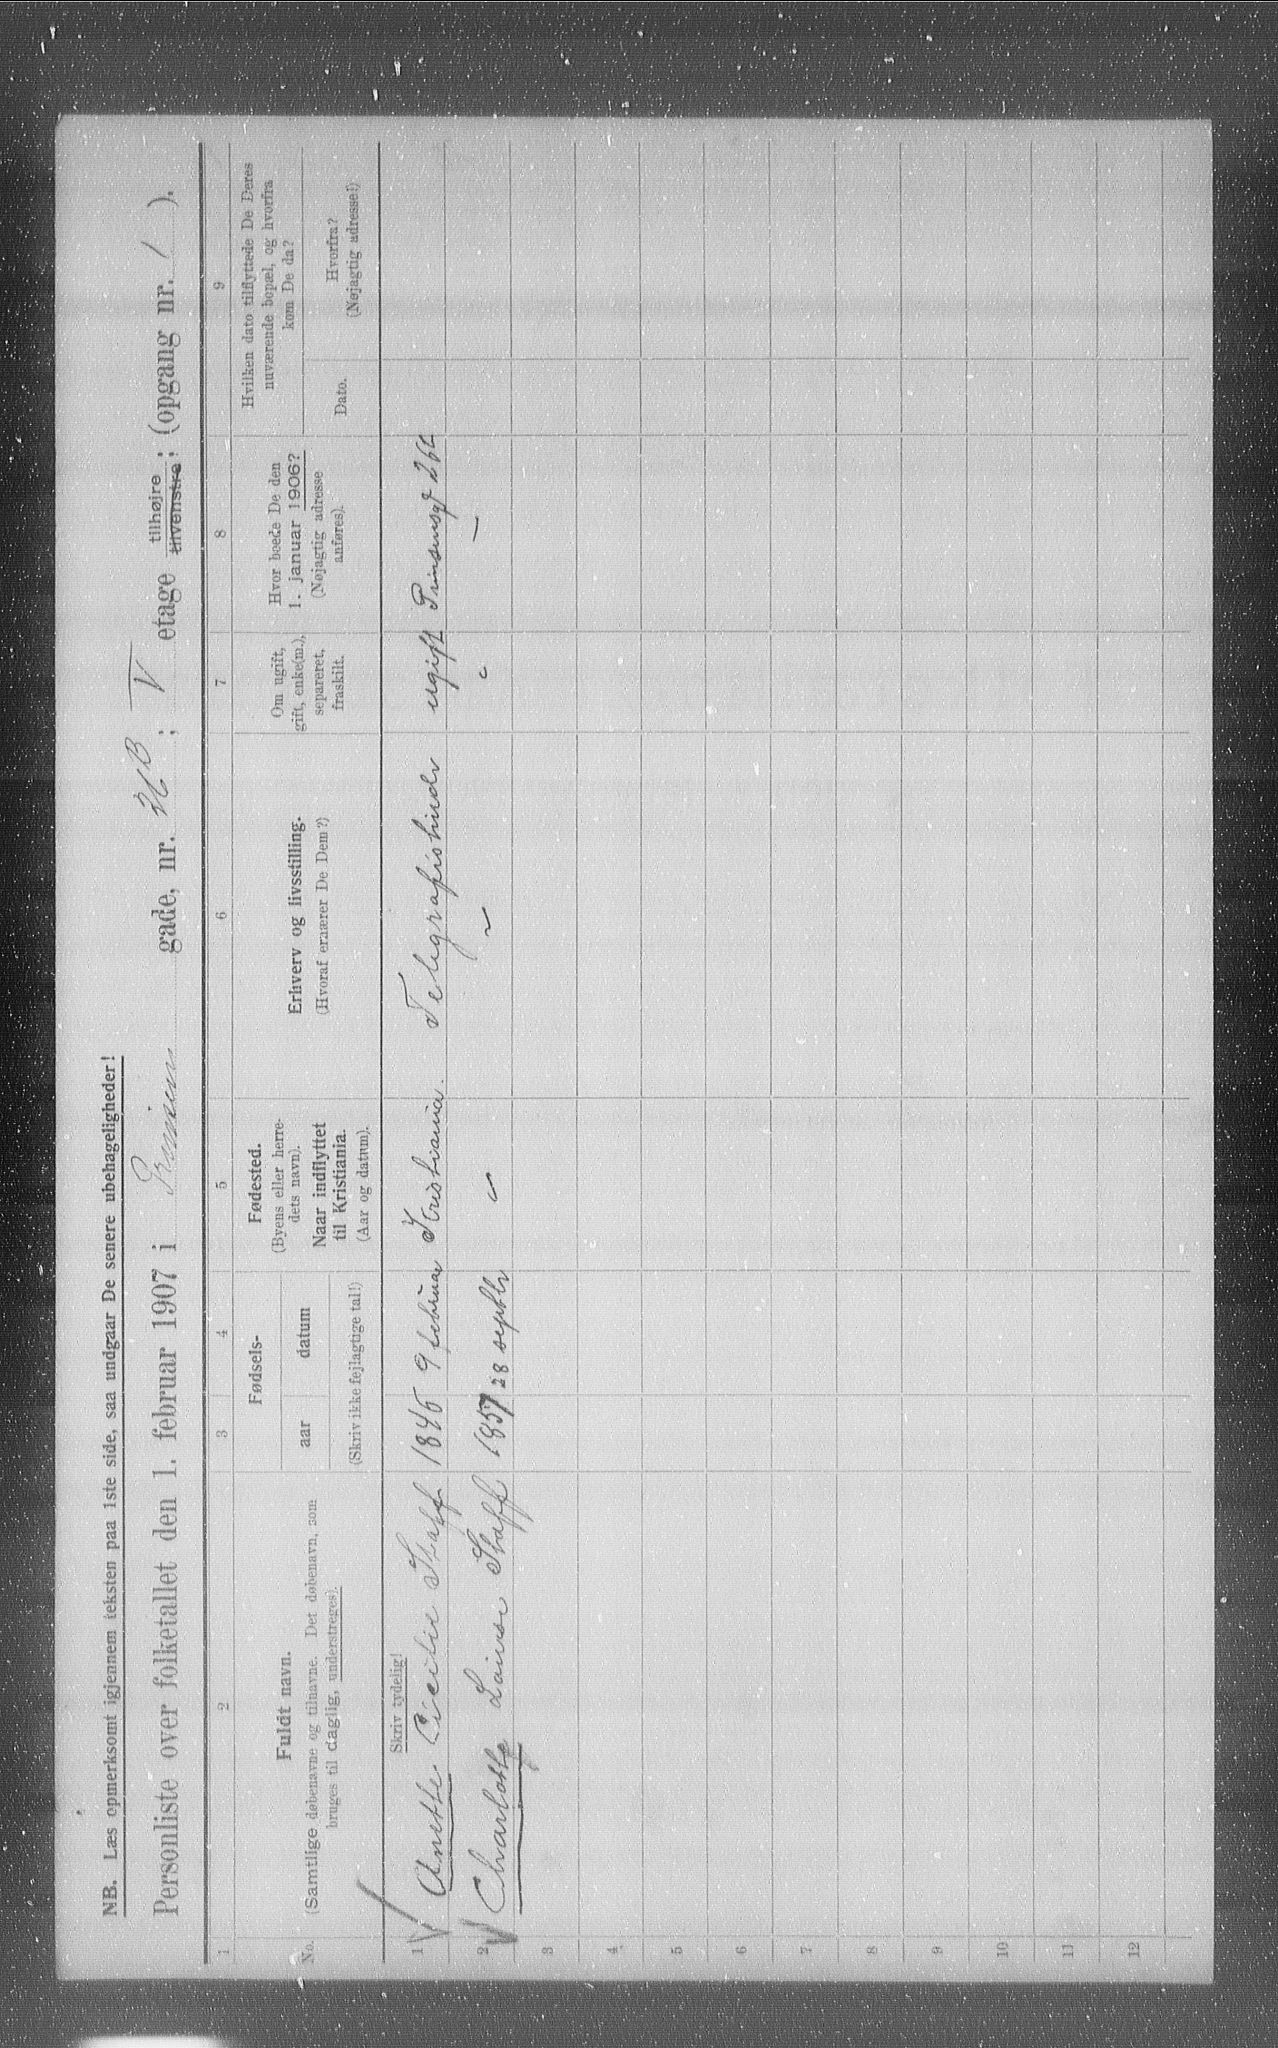 NB. Læs opmerksomt igjennem teksten paa 1ste side, saa undgaar De senere ubehageligheder!
Personliste over folketallet den 1. februar 1907 i Prinsens gade, nr. 26 B; V etage tilhøjre; tilvenstre; (opgang nr. 1).
1 2 3 4 5 6 7 8 9
No.
Fuldt navn.
(Samtlige døbenavne og tilnavne. Det døbenavn, som
bruges til daglig, understreges).
Fødsels-
aar datum
(Skriv ikke fejlagtige tal!)
Fødested.
(Byens eller herre-
dets navn).
Naar indflyttet
til Kristiania.
(Aar og datum).
Erhverv og livsstilling.
(Hvoraf ernærer De Dem?)
Om ugift,
gift, enke(m.),
separeret,
fraskilt.
Hvor boede De den
1. januar 1906?
(Nøjagtig adresse
anføres).
Hvilken dato tilflyttede De Deres
nuværende bopæl, og hvorfra
kom De da?
Dato.
Hvorfra?
(Nøjagtig adresse!)
Skriv tydelig!
1 Anette Cecilie Staff 1845 9 februar Kristiania. Telegrafistinde ugift Prinsensg 26b
2 Charlotte Louise Staff 1857 28 septbr " " " —
3
4
5
6
7
8
9
10
11
12